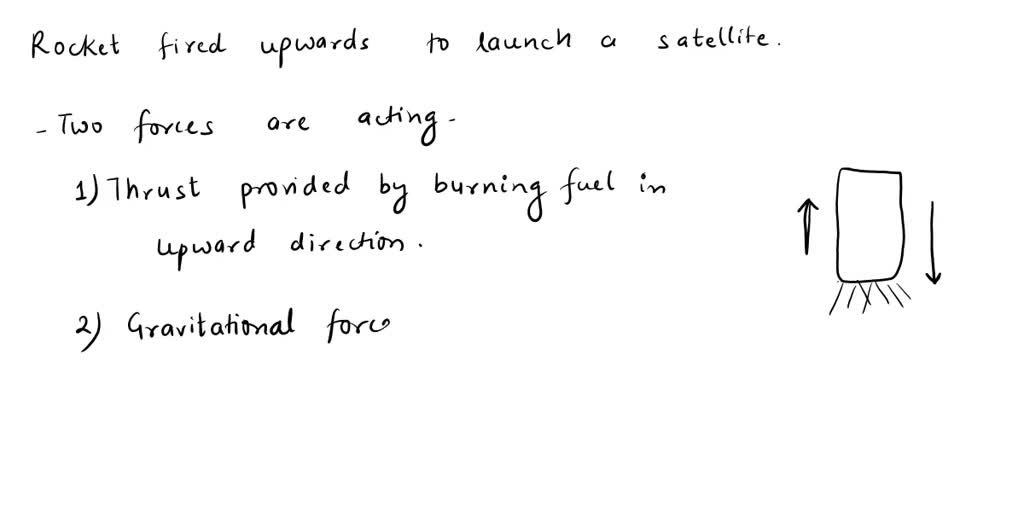 Rocket fired upwards to launch a satellite.
- Two forces are acting -
1) Thrust provided by burning fuel in
upward direction.
2) Gravitational forc